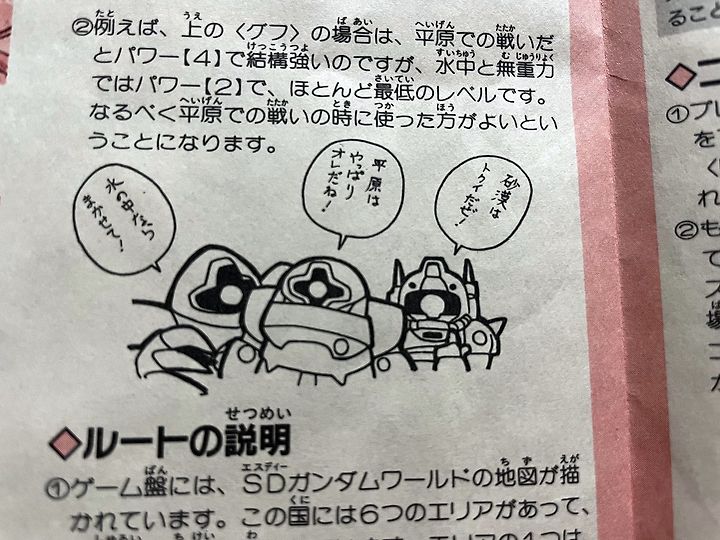 ②例えば、上の〈グフ〉の場合は、平原での戦いだ
とパワー【4】で結構強いのですが、水中と無重力
ではパワー【2】で、ほとんど最低のレベルです。
なるべく平原での戦いの時に使った方がよいとい
うことになります。
水の中なら
まかせて!
平原は
やっぱり
オレだね!
砂漠は
トクイだぜ!
◆ルートの説明
①ゲーム盤には、SDガンダムワールドの地図が描
かれています。この国には6つのエリアがあって、
エリアの4つは
ること
◆
①プレ
を
く
れ
②も
て